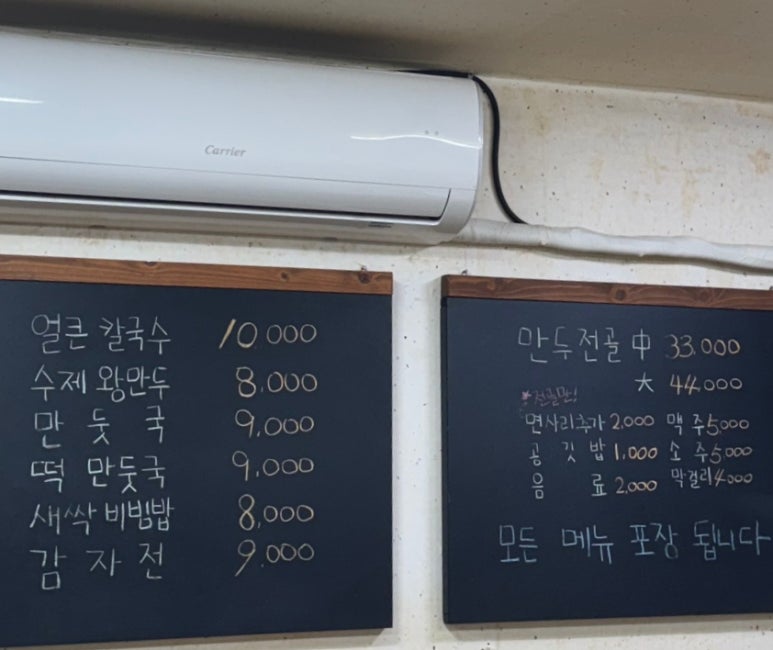 Carrier
얼큰 칼국수 10.000
수제 왕만두 8.000
만둣국 9.000
떡 만둣국 9.000
새싹 비빔밥 8,000
감자전 9.000
만두전골 中 33.000
大 44.000
*전골만!
면사리추가 2.000 맥주 5000
공깃밥 1.000 소주 5000
음료 2.000 막걸리 4000
모든 메뉴 포장 됩니다